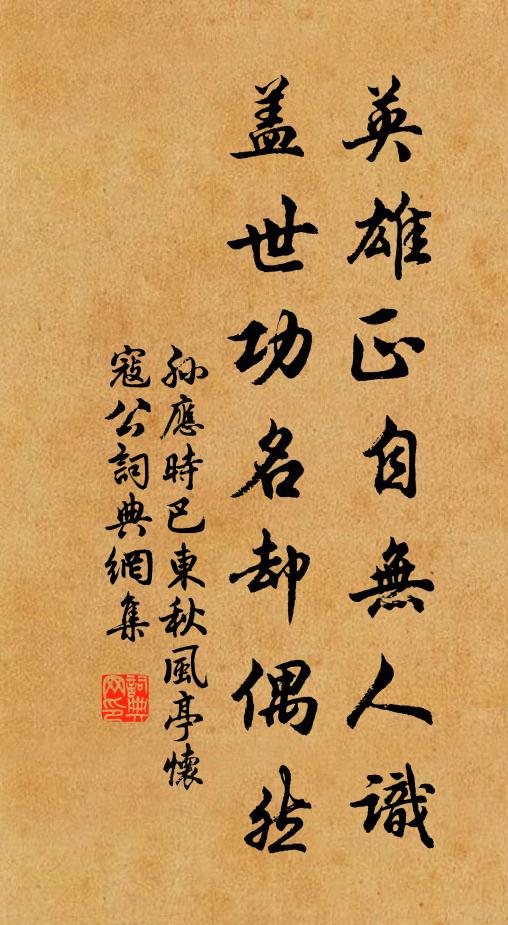 英雄正自無人識
盖世功名却偶然
孙應時巴東秋風亭懷
寇公詞典網集
詞典網印